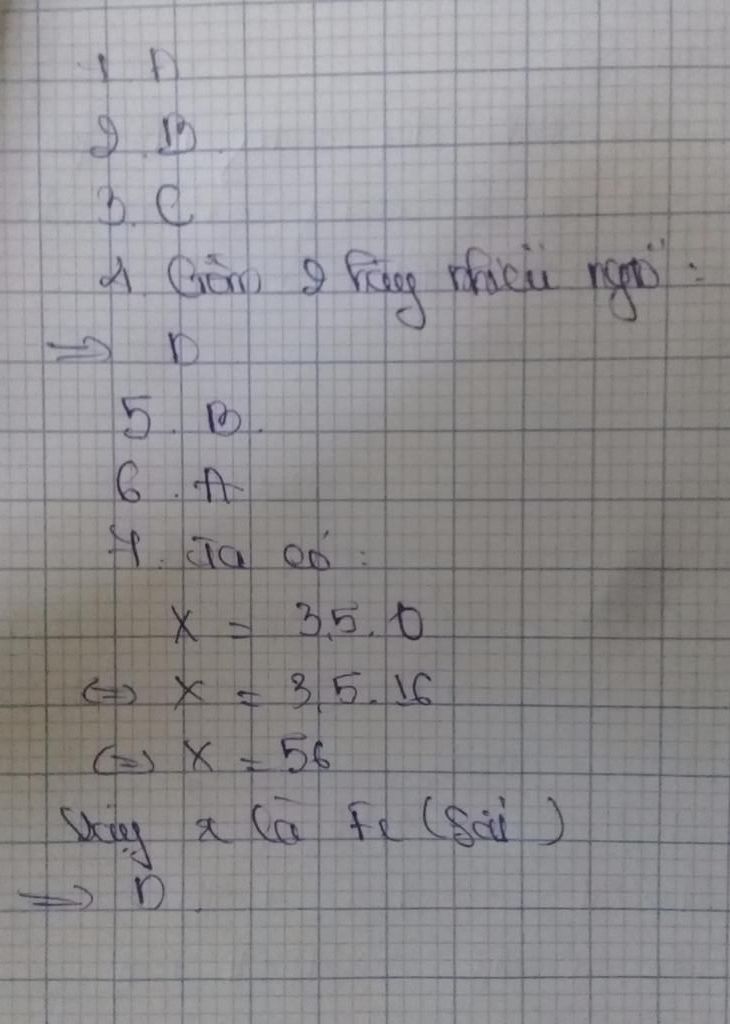 1. D
2. B.
3. C
4. Gồm 2 nhiều ngô :
=> D
5. B.
6. A
7. Ta có :
X = 3,5. O
<=> X = 3,5. 16
<=> X = 56
Vậy x là Fe (Sắt)
=> D.